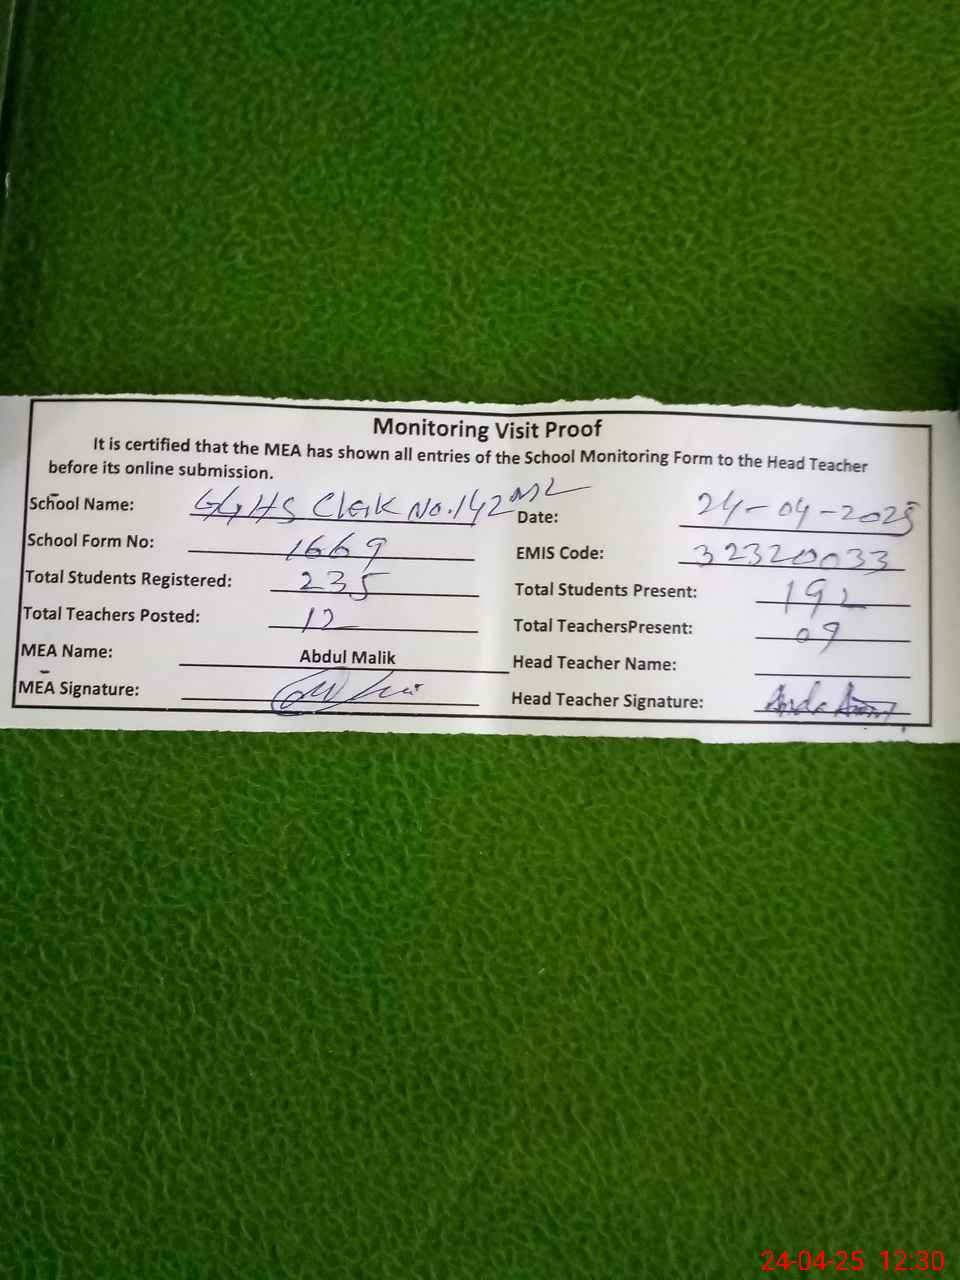 Monitoring Visit Proof
It is certified that the MEA has shown all entries of the School Monitoring Form to the Head Teacher
before its online submission.
School Name: GGHS Chak No.142 ML Date: 24-04-2025
School Form No: 1669 EMIS Code: 32320033
Total Students Registered: 235 Total Students Present: 192
Total Teachers Posted: 12 Total TeachersPresent: 09
MEA Name: Abdul Malik Head Teacher Name:
MEA Signature: Head Teacher Signature:
24-04-25 12:30